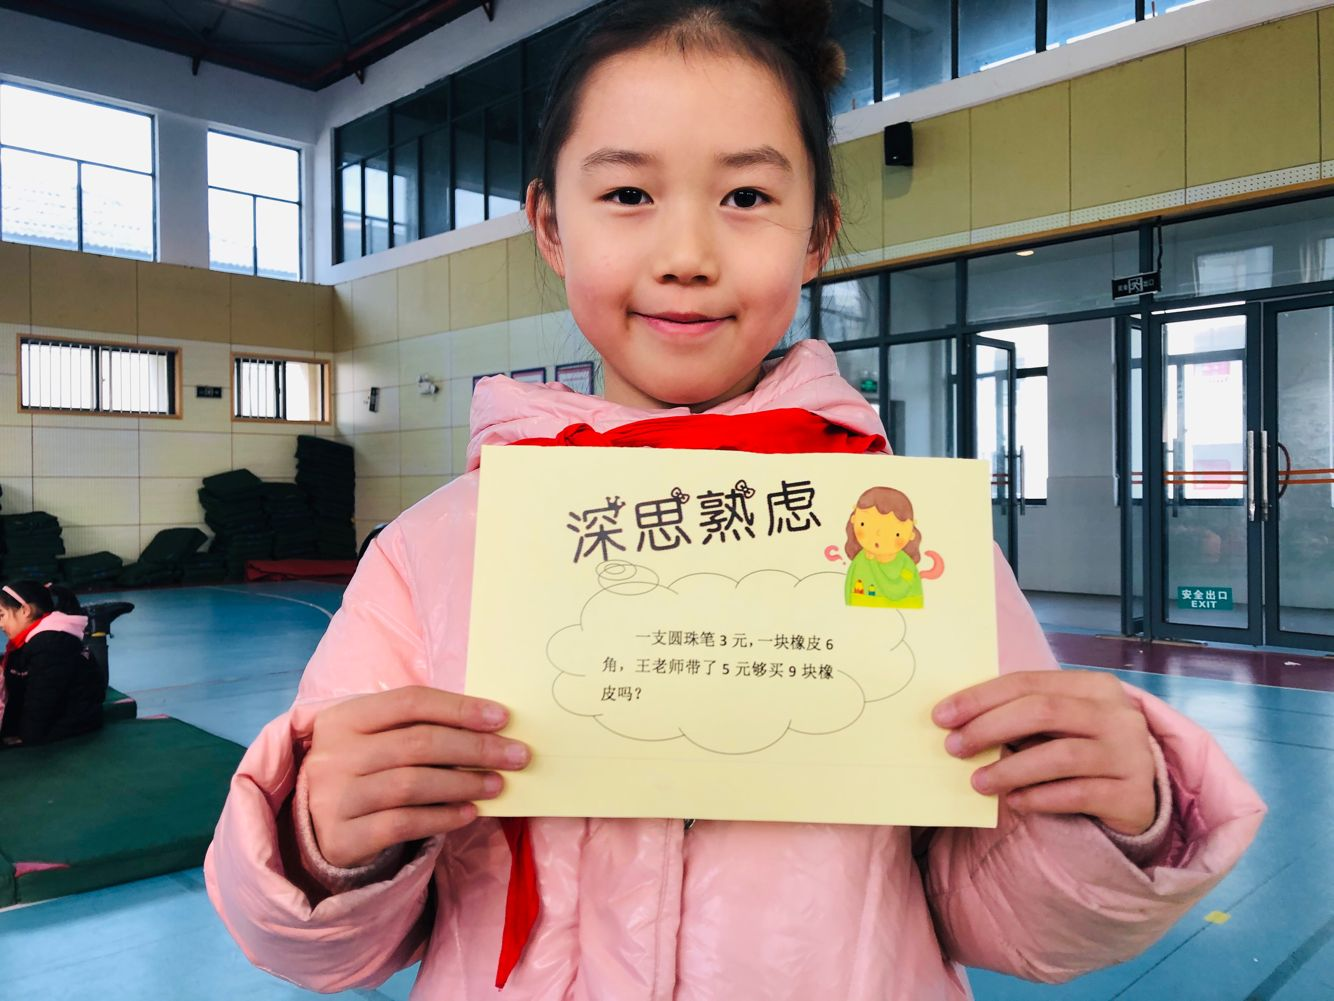 深思熟虑
一支圆珠笔 3 元，一块橡皮 6
角，王老师带了 5 元够买 9 块橡
皮吗？
安全出口
EXIT